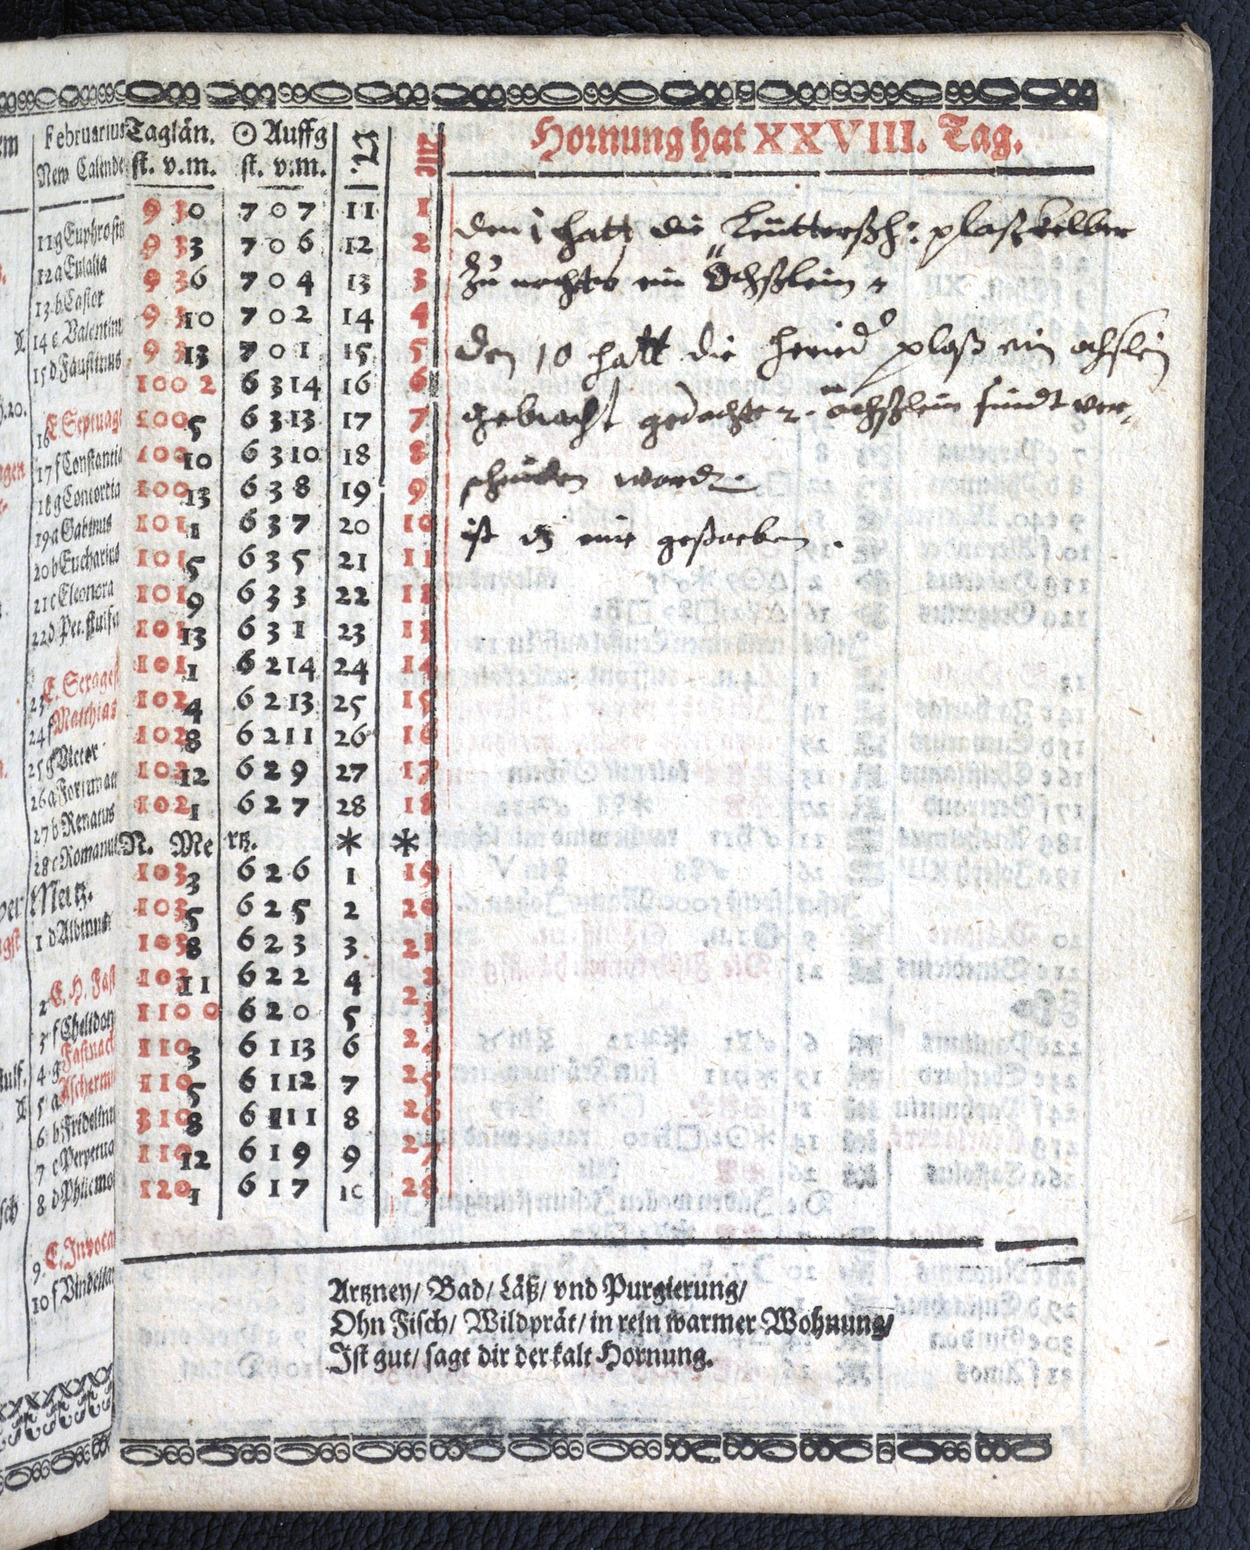 Februarius
New Calender
11 g Euphrosin
12 a Eulalia
13 b Castor
14 c Valentin
15 d Faustinus
16 E. Septuag
17 f Constantia
18 g Concordia
19 a Gabinus
20 b Eucharius
21 c Eleonora
22 d Pet. stulf
23 E. Sexagesi
24 f Matthias
25 g Victor
26 a Fortunat
27 b Renatus
28 c Romanus
Mertz.
1 d Albinus
2 E. H. Fast
3 f Chelidon
4 g Fastnacht
5 a Ascherm
6 b Fridolinus
7 c Perpetua
8 d Philemo
9 E. Invoca
10 f
Taglän. ☉ Auffg
st. v. m. st. v. m.
Hornung hat XXVIII. Tag.
9 3 0 7 0 7 11 1
9 3 3 7 0 6 12 2
9 3 6 7 0 4 13 3
9 3 10 7 0 2 14 4
9 3 13 7 0 1 15 5
10 0 2 6 3 14 16 6
10 0 5 6 3 13 17 7
10 0 10 6 3 10 18 8
10 0 13 6 3 8 19 9
10 1 1 6 3 7 20 10
10 1 5 6 3 5 21 11
10 1 9 6 3 3 22 12
10 1 13 6 3 1 23 13
10 1 1 6 2 14 24 14
10 2 4 6 2 13 25 15
10 2 8 6 2 11 26 16
10 2 12 6 2 9 27 17
10 2 1 6 2 7 28 18
N. Mertz. * *
10 3 3 6 2 6 1 19
10 3 5 6 2 5 2 20
10 3 8 6 2 3 3 21
10 3 11 6 2 2 4 22
11 0 0 6 2 0 5 23
11 0 3 6 1 13 6 24
11 0 5 6 1 12 7 25
31 0 8 6 1 11 8 26
11 0 12 6 1 9 9 27
12 0 1 6 1 7 10 28
den 1 hatt die
Zu nachts ein öchsslein
Den 10 hatt die ein ochslein
gebracht gedachte 2. öchsslein sindt ver-
ist mir gestorben.
Artzney/ Bad/ Läß/ vnd Purgierung/
Ohn Fisch/ Wildprät/ in rein warmer Wohnung/
Ist gut/ sagt dir der kalt Hornung.